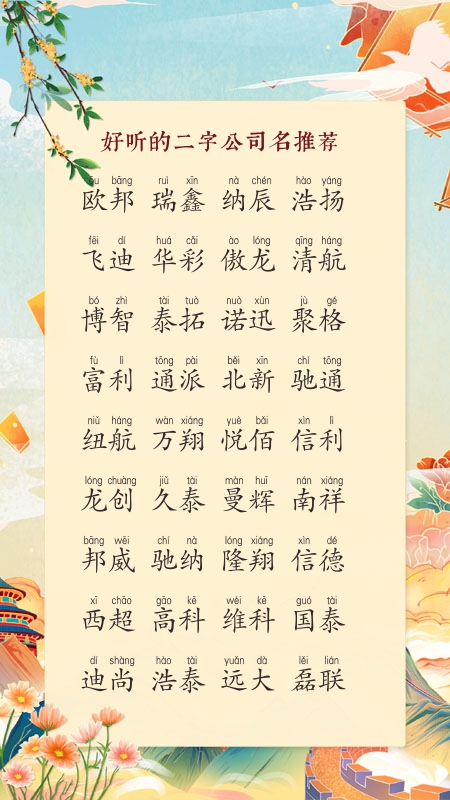 好听的二字公司名推荐
ōu bāng ruì xīn nà chén hào yáng
欧邦 瑞鑫 纳辰 浩扬
fēi dí huá cǎi ào lóng qīng háng
飞迪 华彩 傲龙 清航
bó zhì tài tuò nuò xùn jù gé
博智 泰拓 诺迅 聚格
fù lì tōng pài běi xīn chí tōng
富利 通派 北新 驰通
niǔ háng wàn xiáng yuè bǎi xìn lì
纽航 万翔 悦佰 信利
lóng chuàng jiǔ tài màn huī nán xiáng
龙创 久泰 曼辉 南祥
bāng wēi chí nà lóng xiáng xìn dé
邦威 驰纳 隆翔 信德
xī chāo gāo kē wéi kē guó tài
西超 高科 维科 国泰
dí shàng hào tài yuǎn dà lěi lián
迪尚 浩泰 远大 磊联